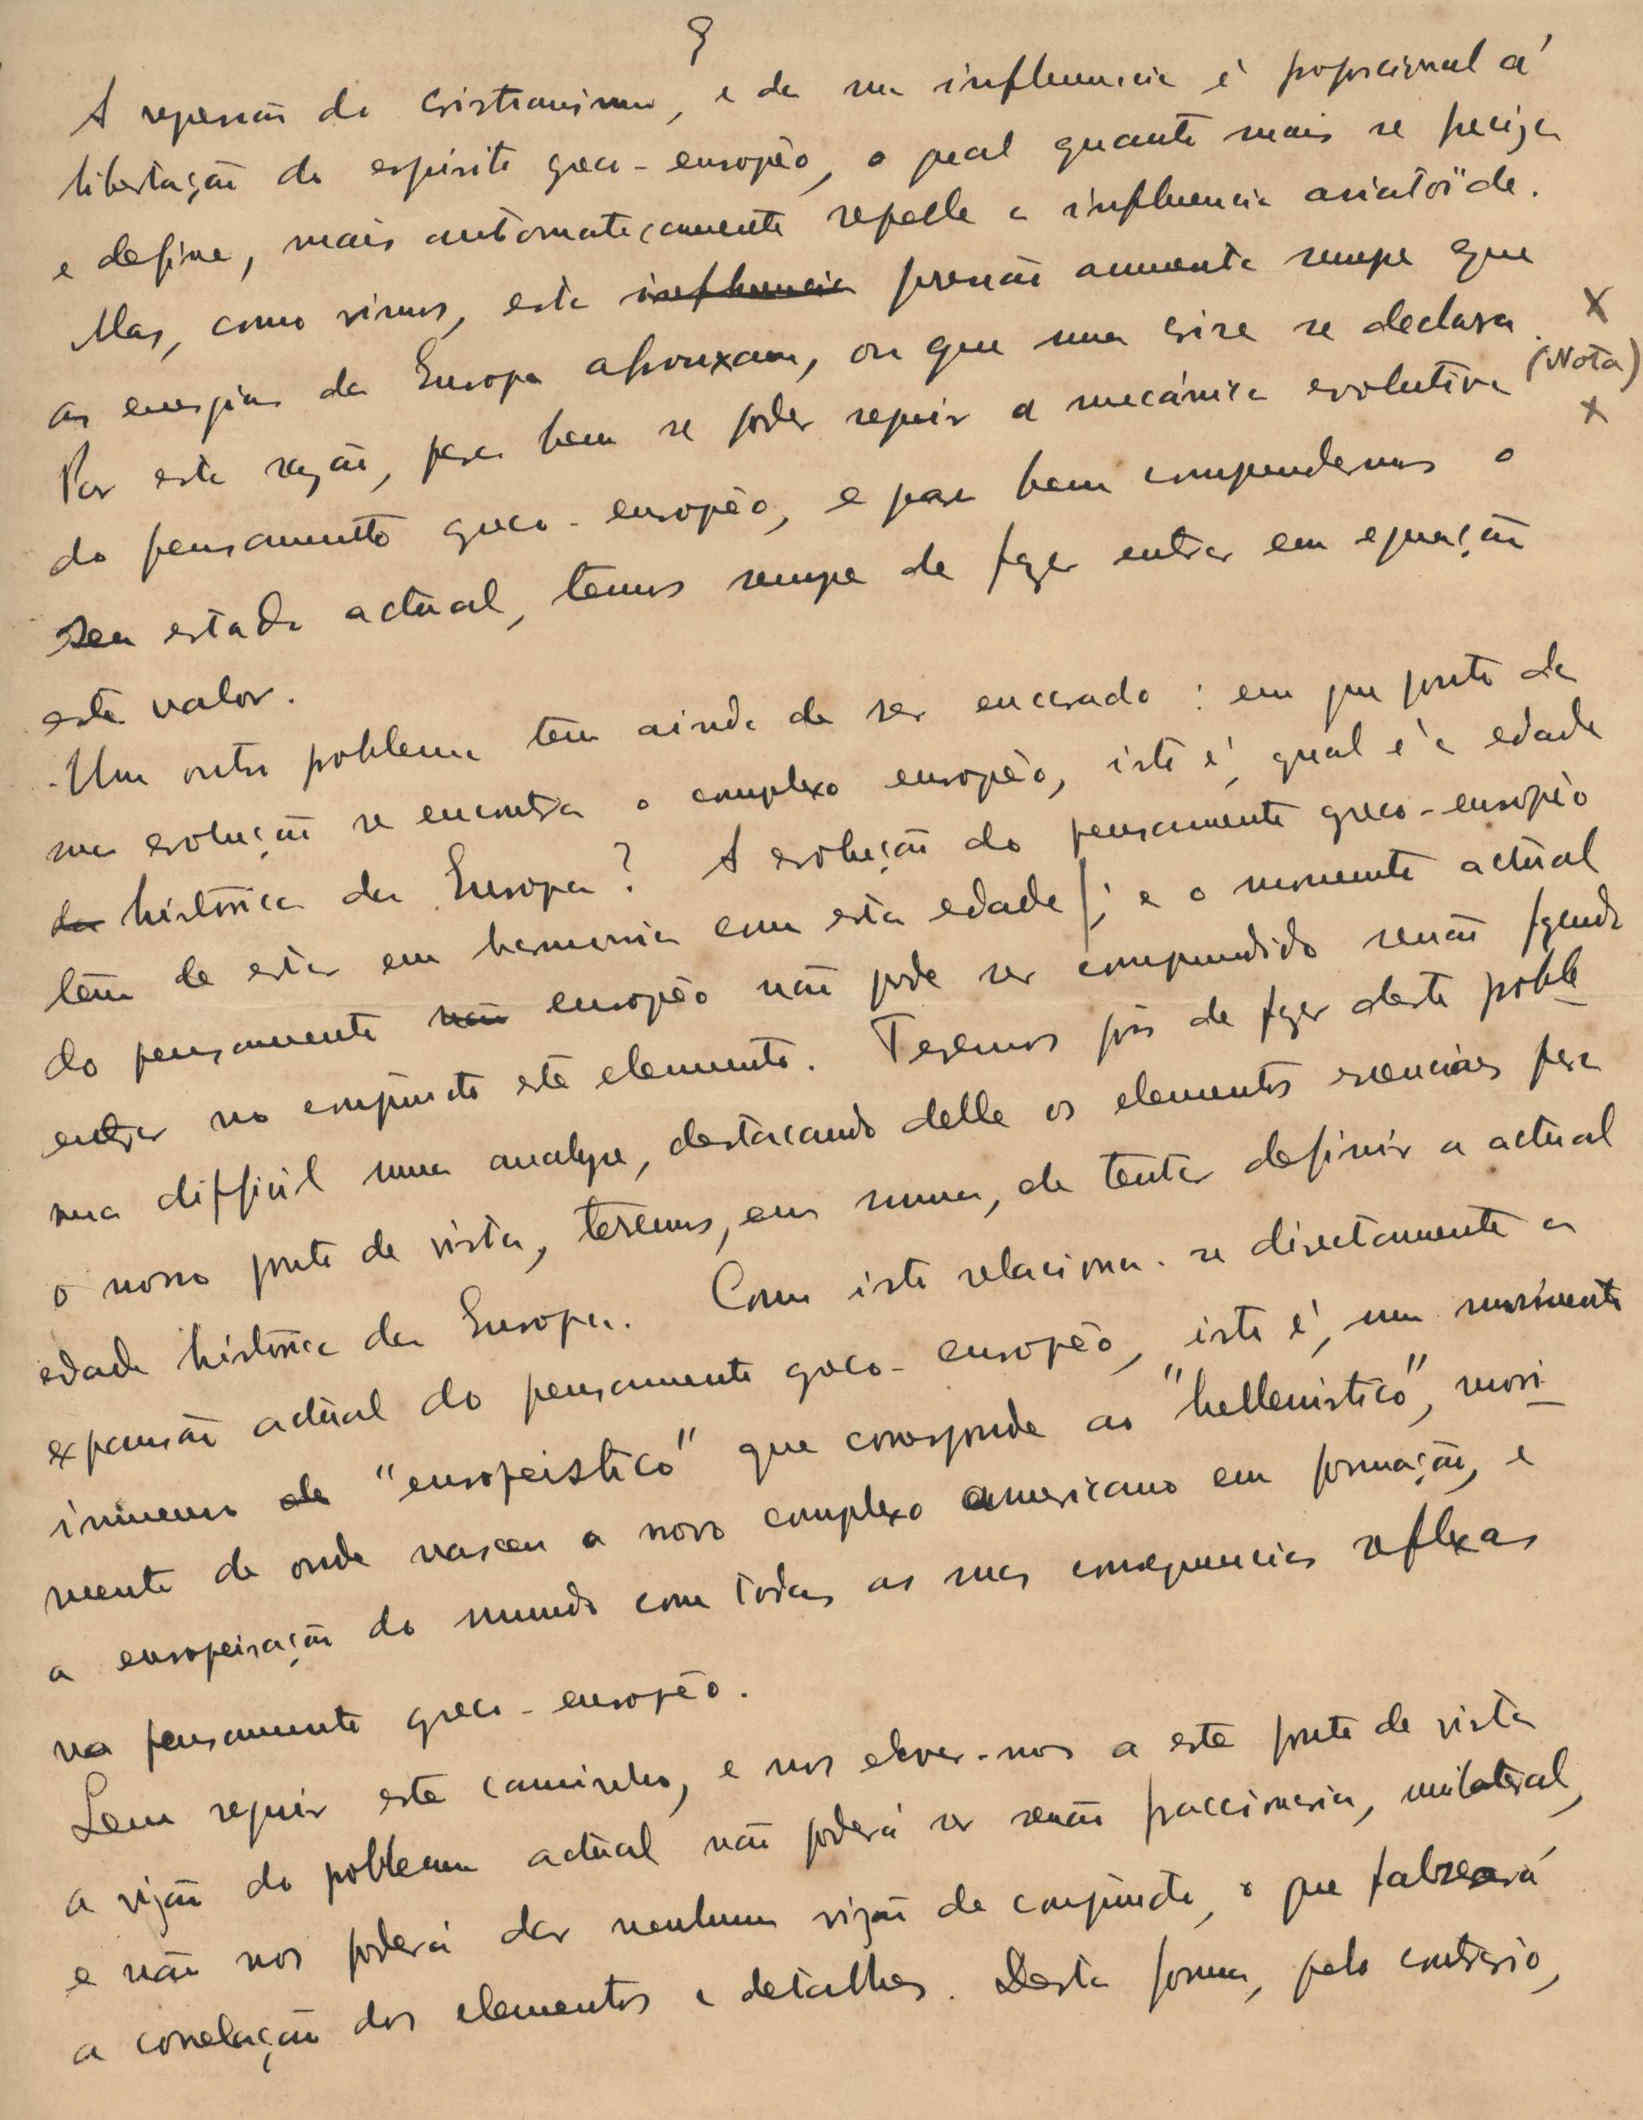 9
A repressão do cristianismo, e da sua influencia é proporcional á
libertação do espirito greco-europêo, o qual quanto mais se preciza
e define, mais automaticamente repelle a influencia asiatoïde.
Mas, como vimos, esta influencia pressão aumenta sempre que
as energias da Europa afrouxam, ou que uma crise se declara. X
Por esta razão, para bem se poder seguir a mecánica evolutiva (Nota)
X
do pensamento greco-europêo, e para bem comprendermos o
seu estado actual, temos sempre de fazer entrar em equação
este valor.
-Um outro problema tem ainda de ser encarado: em que ponto da
sua evolução se encontra o complexo europêo, isto é, qual é a edade
da histórica da Europa? A evolução do pensamento greco-europêo
têm de estar em harmonia com esta edade; e o momento actual
do pensamento não europêo não pode ser comprendido senão fazendo
entrar no conjuncto este elemento. Teremos pois de fazer deste proble
ma difficil uma analyse, destacando delle os elementos essenciaes para
o nosso ponto de vista, teremos, em suma, de tentar definir a actual
edade histórica da Europa. Com isto relaciona-se directamente a
expansão actual do pensamento greco-europêo, isto é, um movimento
immenso de "europeistico" que corresponde ao "hellenistico", movi
mento de onde nasceu o novo complexo americano em formação, e
a europeisação do mundo com todas as suas consequencias reflexas
no pensamento greco-europêo.
Sem seguir este caminho, e nos elevar-nos a este ponto de vista
a visão do problema actual não poderá ser senão fraccionaria, unilateral,
e não nos poderá dar nenhuma visão de conjuncto, o que falseará
a correlação dos elementos e detalhes. Desta forma, pelo contrario,